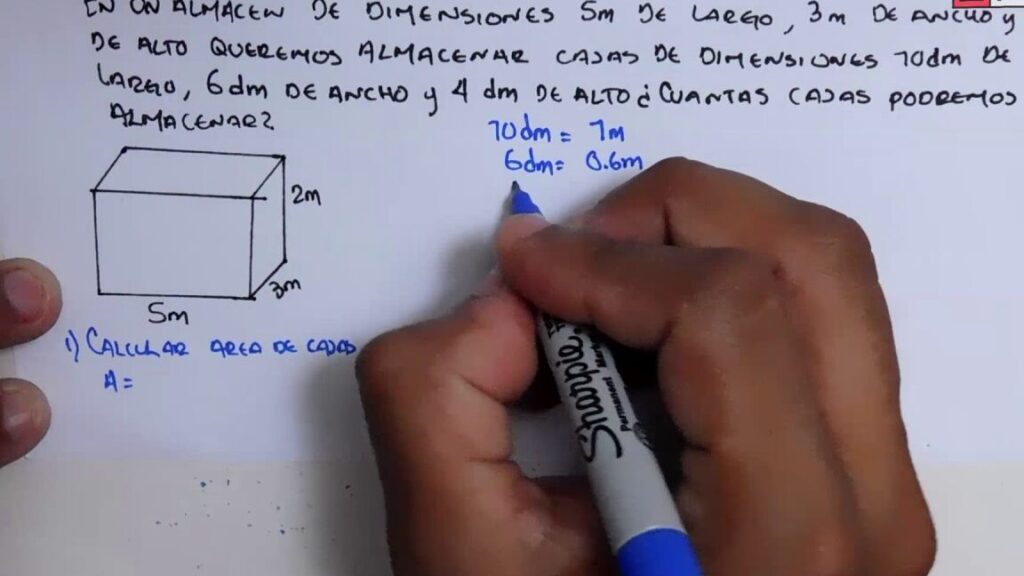 EN UN ALMACEN DE DIMENSIONES 5m DE LARGO, 3m DE ANCHO y
DE ALTO QUEREMOS ALMACENAR CAJAS DE DIMENSIONES 10dm DE
LARGO, 6dm DE ANCHO y 4 dm DE ALTO ¿CUANTAS CAJAS PODREMOS
ALMACENAR?
10dm = 1m
6dm = 0.6m
2m
3m
5m
1) CALCULAR AREA DE CAJAS
A =
Sharpie
Permanent Marker